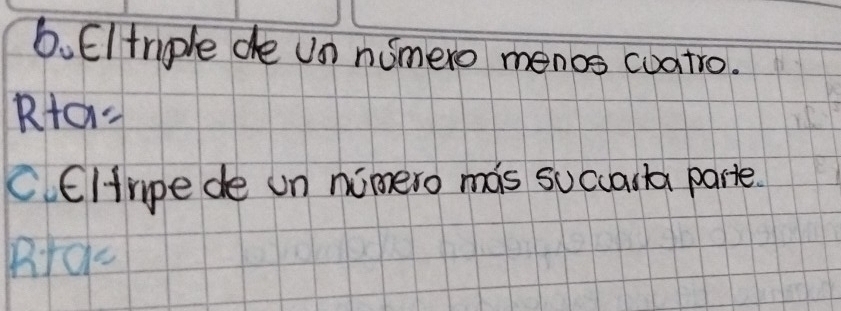 b. El triple de un número menos cuatro.
Rta=
C. El tripe de un número más su cuarta parte.
Rta=